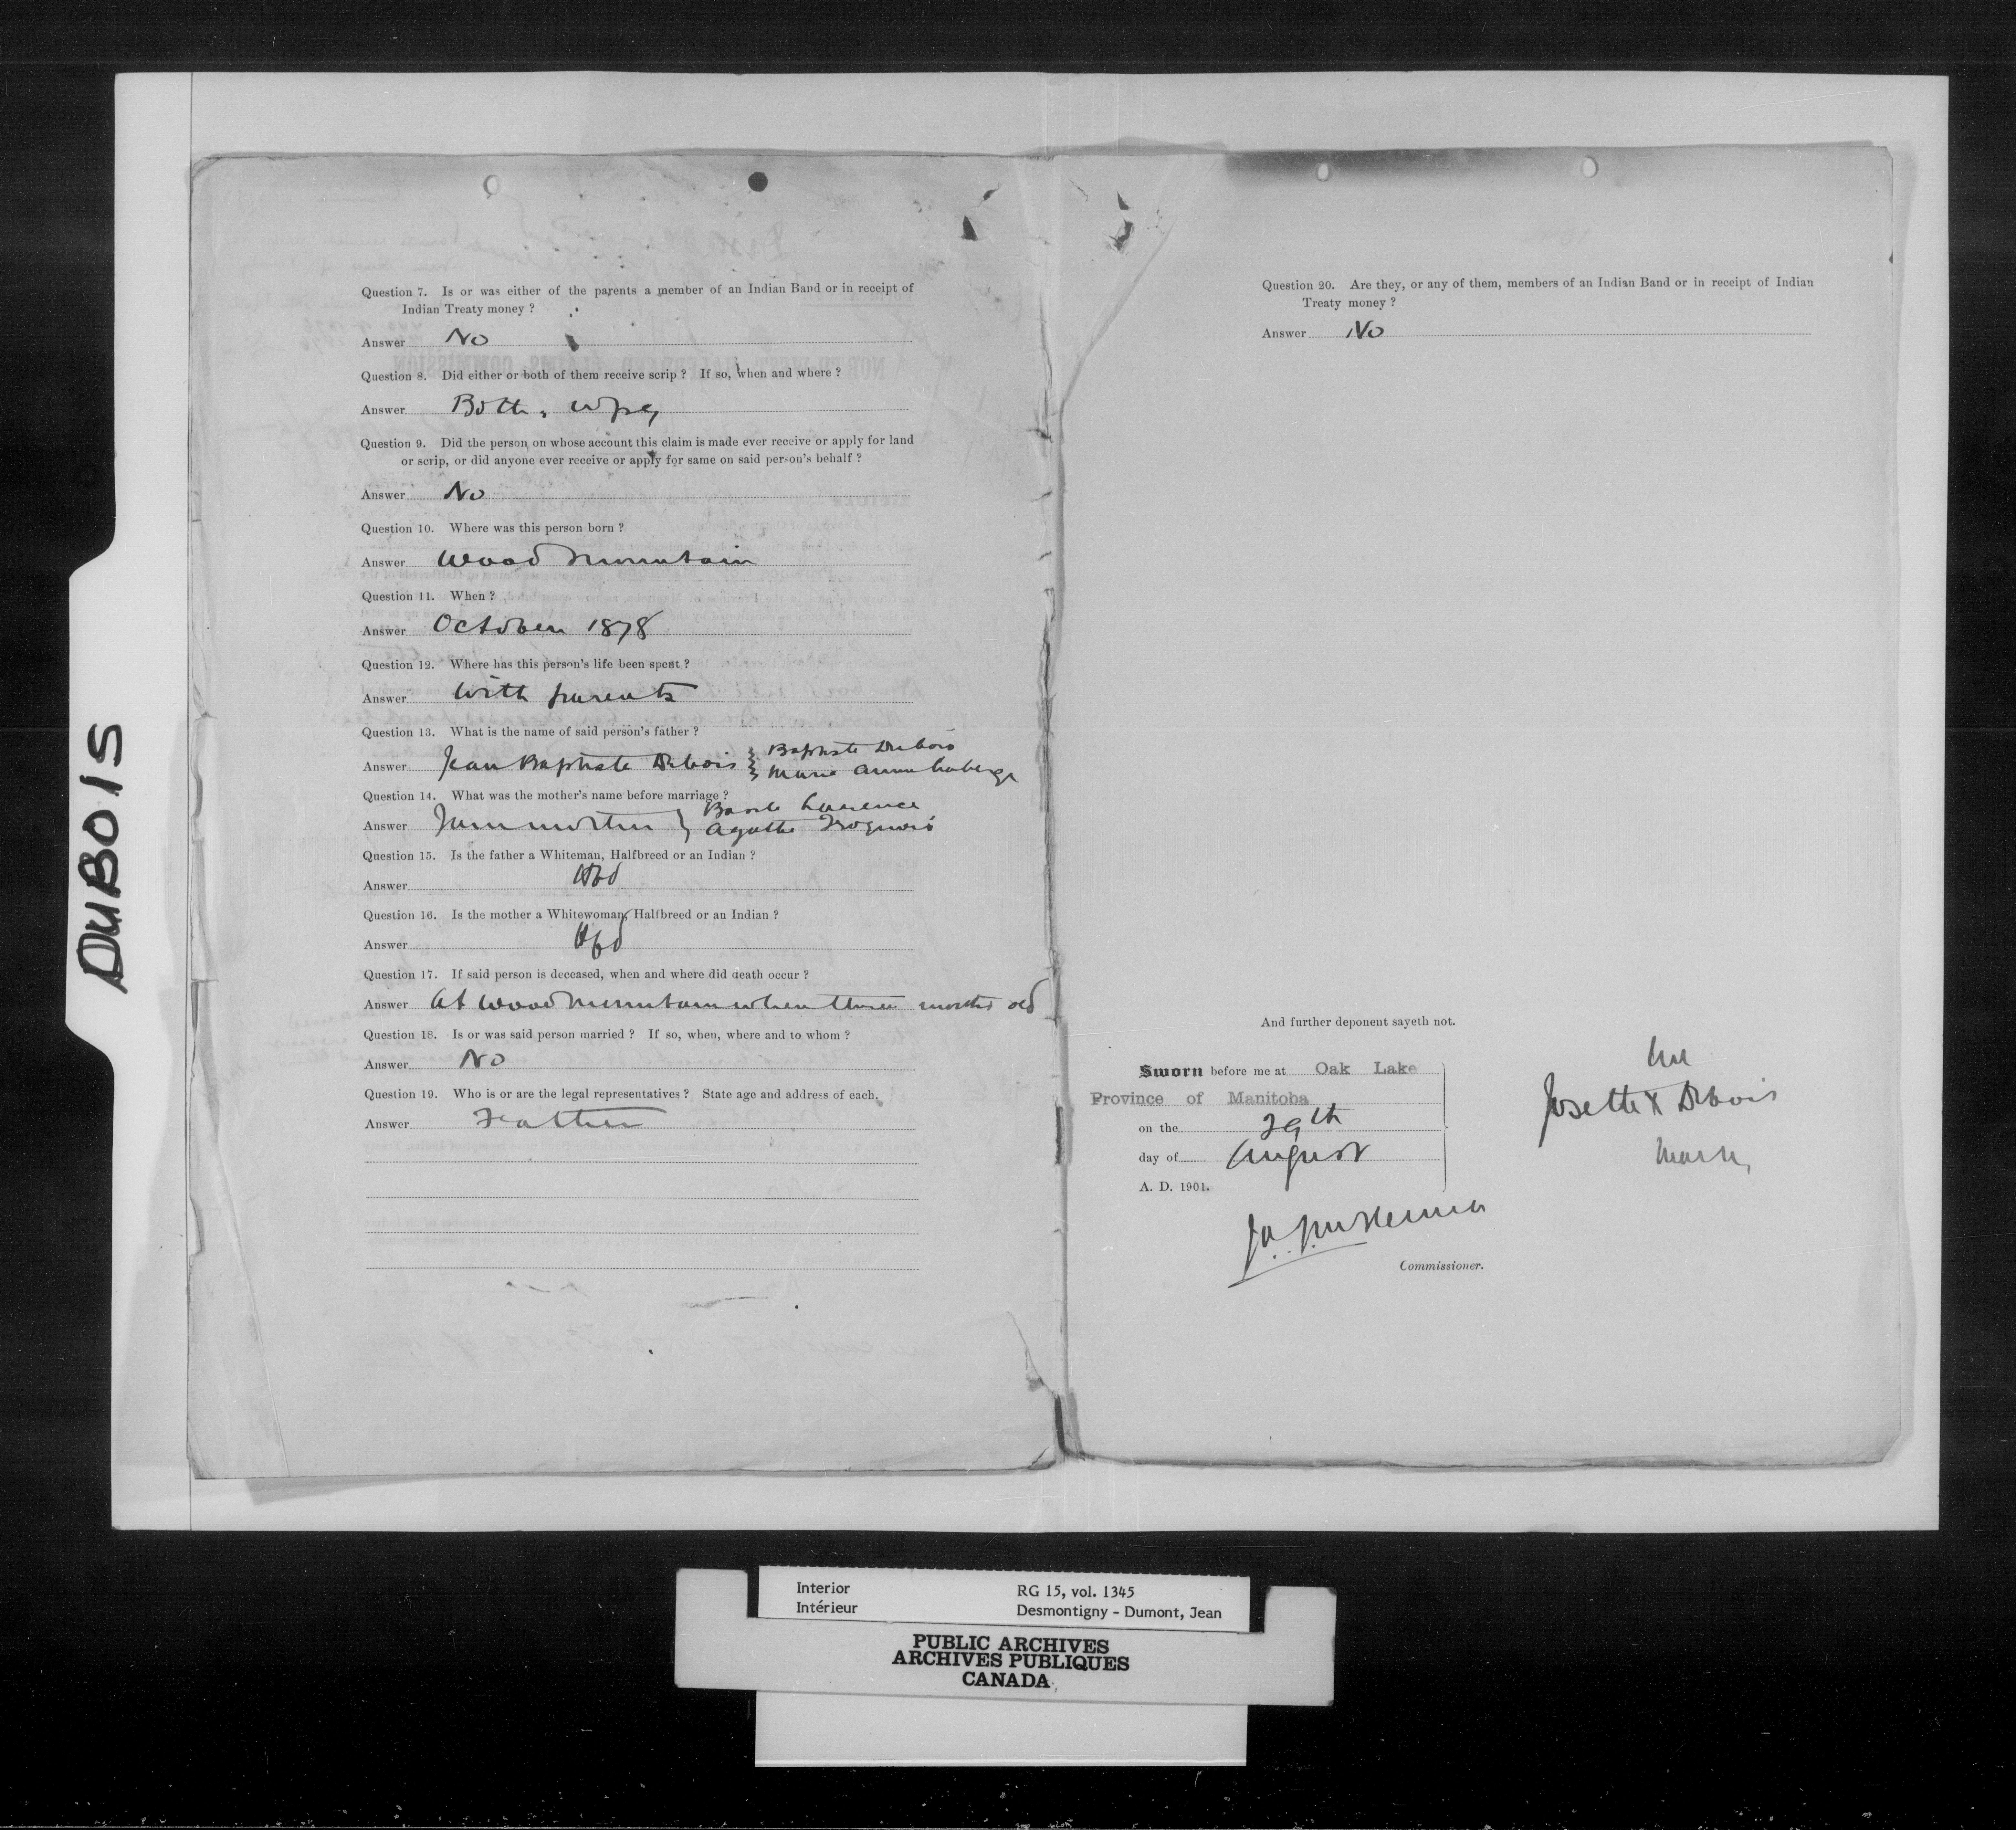 DUBOIS
Question 7. Is or was either of the parents a member of an Indian Band or in receipt of
Indian Treaty money ?
Answer No
Question 8. Did either or both of them receive scrip ? If so, when and where ?
Answer Both, Wpg
Question 9. Did the person on whose account this claim is made ever receive or apply for land
or scrip, or did anyone ever receive or apply for same on said person's behalf ?
Answer No
Question 10. Where was this person born ?
Answer Wood Mountain
Question 11. When ?
Answer October 1878
Question 12. Where has this person's life been spent ?
Answer With parents
Question 13. What is the name of said person's father ?
Answer Jean Baptiste Dubois } Baptiste Dubois
Marie Anne Laberge
Question 14. What was the mother's name before marriage ?
Basile Laurence
Answer } Agathe Iroquois
Question 15. Is the father a Whiteman, Halfbreed or an Indian ?
Answer Hbd
Question 16. Is the mother a Whitewoman, Halfbreed or an Indian ?
Answer Hbd
Question 17. If said person is deceased, when and where did death occur ?
Answer At Wood Mountain when three months old
Question 18. Is or was said person married ? If so, when, where and to whom ?
Answer No
Question 19. Who is or are the legal representatives ? State age and address of each.
Answer Father
Question 20. Are they, or any of them, members of an Indian Band or in receipt of Indian
Treaty money ?
Answer No
And further deponent sayeth not.
Sworn before me at Oak Lake
Province of Manitoba
on the 29th
day of August
A. D. 1901.
her
Josette X Dubois
mark
Commissioner.
Interior
Intérieur
RG 15, vol. 1345
Desmontigny - Dumont, Jean
PUBLIC ARCHIVES
ARCHIVES PUBLIQUES
CANADA